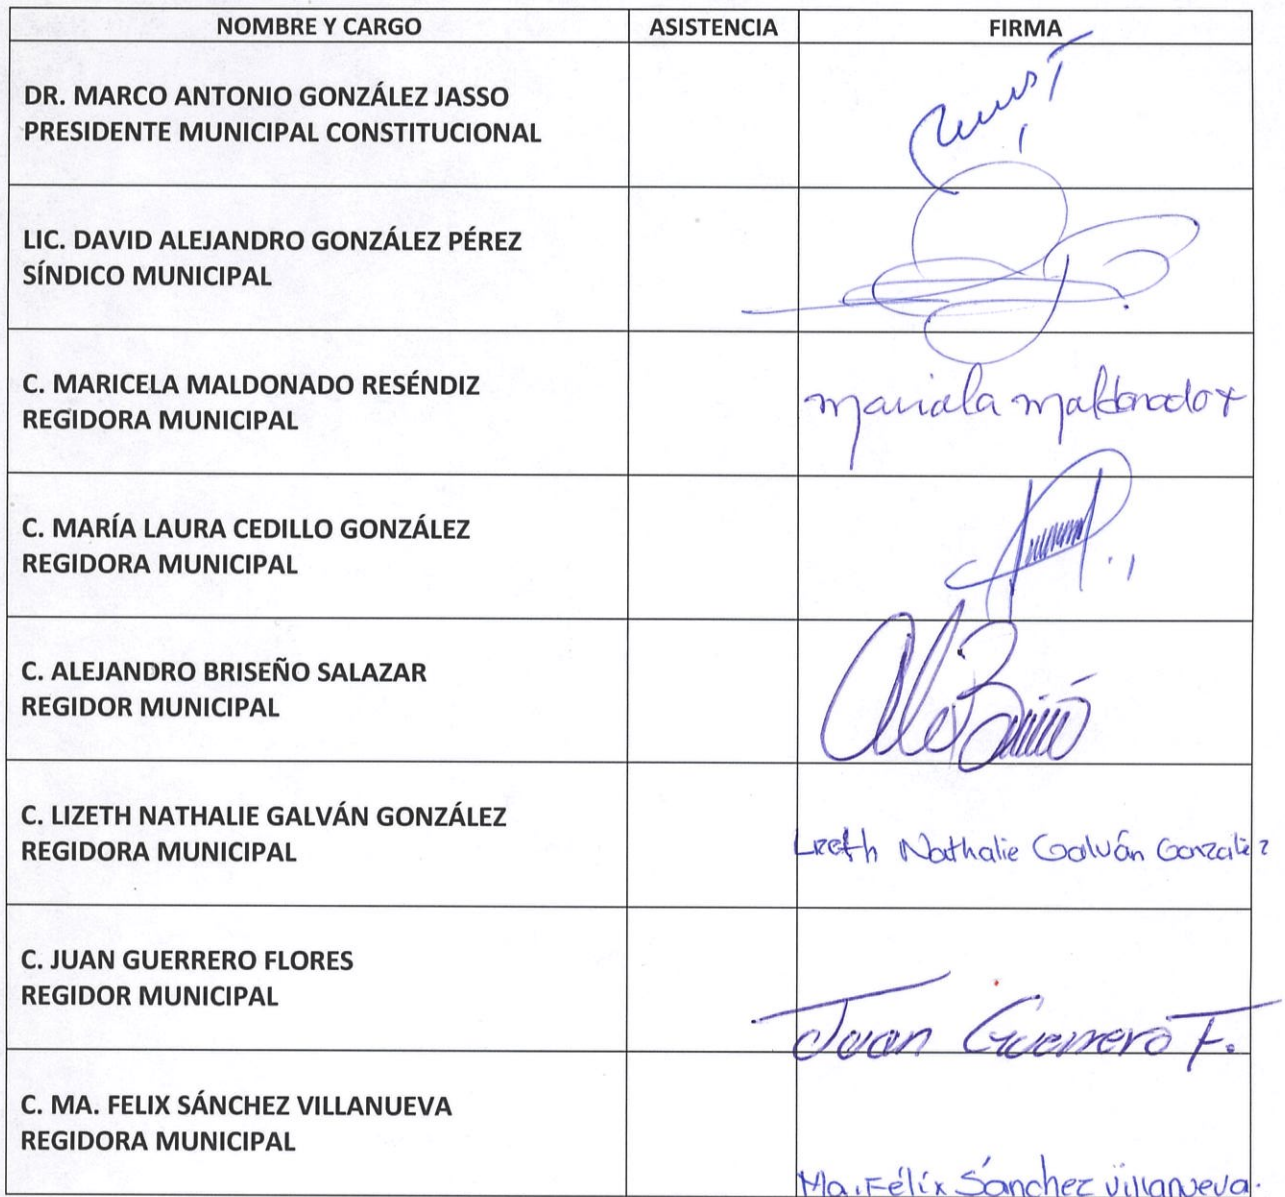 NOMBRE Y CARGO ASISTENCIA FIRMA
DR. MARCO ANTONIO GONZÁLEZ JASSO
PRESIDENTE MUNICIPAL CONSTITUCIONAL
LIC. DAVID ALEJANDRO GONZÁLEZ PÉREZ
SÍNDICO MUNICIPAL
C. MARICELA MALDONADO RESÉNDIZ
REGIDORA MUNICIPAL
maricela maldonado r
C. MARÍA LAURA CEDILLO GONZÁLEZ
REGIDORA MUNICIPAL
C. ALEJANDRO BRISEÑO SALAZAR
REGIDOR MUNICIPAL
C. LIZETH NATHALIE GALVÁN GONZÁLEZ
REGIDORA MUNICIPAL
Lizeth Nathalie Galván González
C. JUAN GUERRERO FLORES
REGIDOR MUNICIPAL
Juan Guerrero F.
C. MA. FELIX SÁNCHEZ VILLANUEVA
REGIDORA MUNICIPAL
Ma. Félix Sánchez Villanueva.